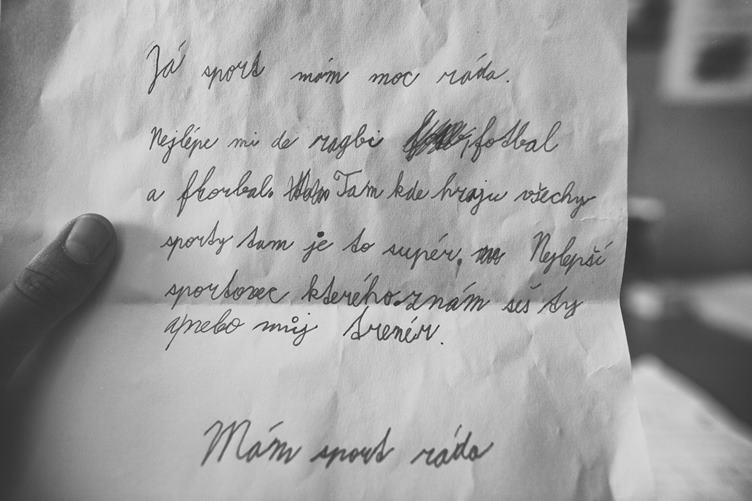 Já sport mám moc ráda.
Nejlépe mi de ragbi fotbal
a florbal. Tam kde hraju všechy
sporty tam je to supér. Nejlepší
sportovec kterého znám seš ty
anebo můj trenér.
Mám sport ráda